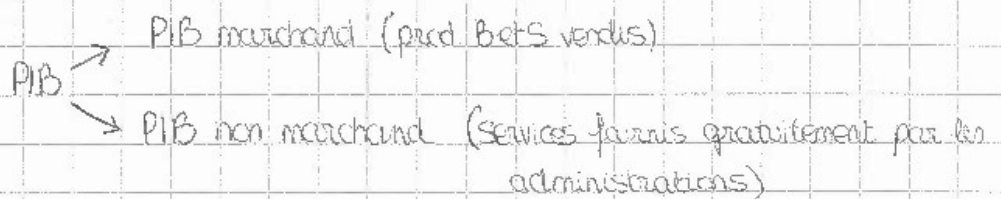 PIB marchand (prod BetS vendus)
PIB
PIB non marchand (services fournis gratuitement par les
administrations)